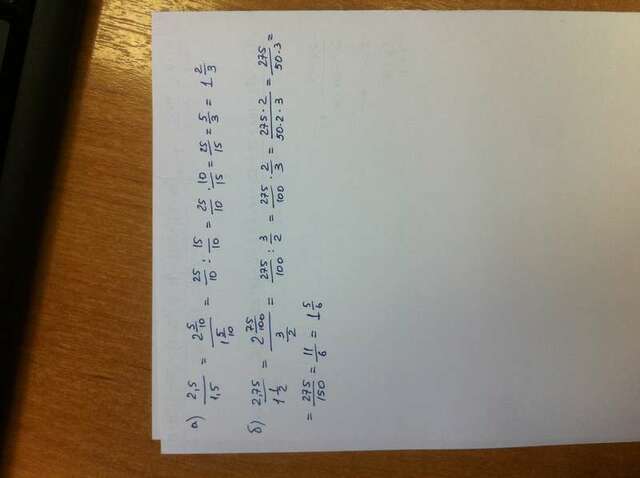 а) 2,5/1,5 = 2 5/10 / 1 5/10 = 25/10 : 15/10 = 25/10 · 10/15 = 25/15 = 5/3 = 1 2/3
б) 2,75 / 1 1/2 = 2 75/100 / 3/2 = 275/100 : 3/2 = 275/100 · 2/3 = 275·2 / 50·2·3 = 275 / 50·3 =
= 275/150 = 11/6 = 1 5/6